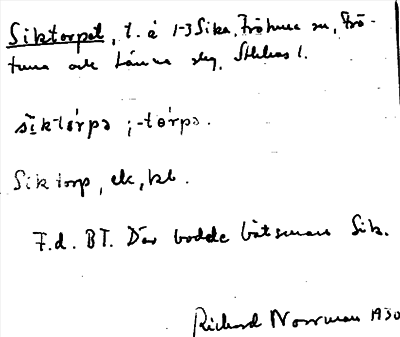 Siktorpet, t. å 1-3 Sika, Frötuna sn, Frö-
tuna och Länna skg, Sthlms l.
sīktòrpə ; -tòrpə.
Siktorp, ek, bl.
F.d. BT. Där bodde båtsman Sik.
Richard Norrman 1930